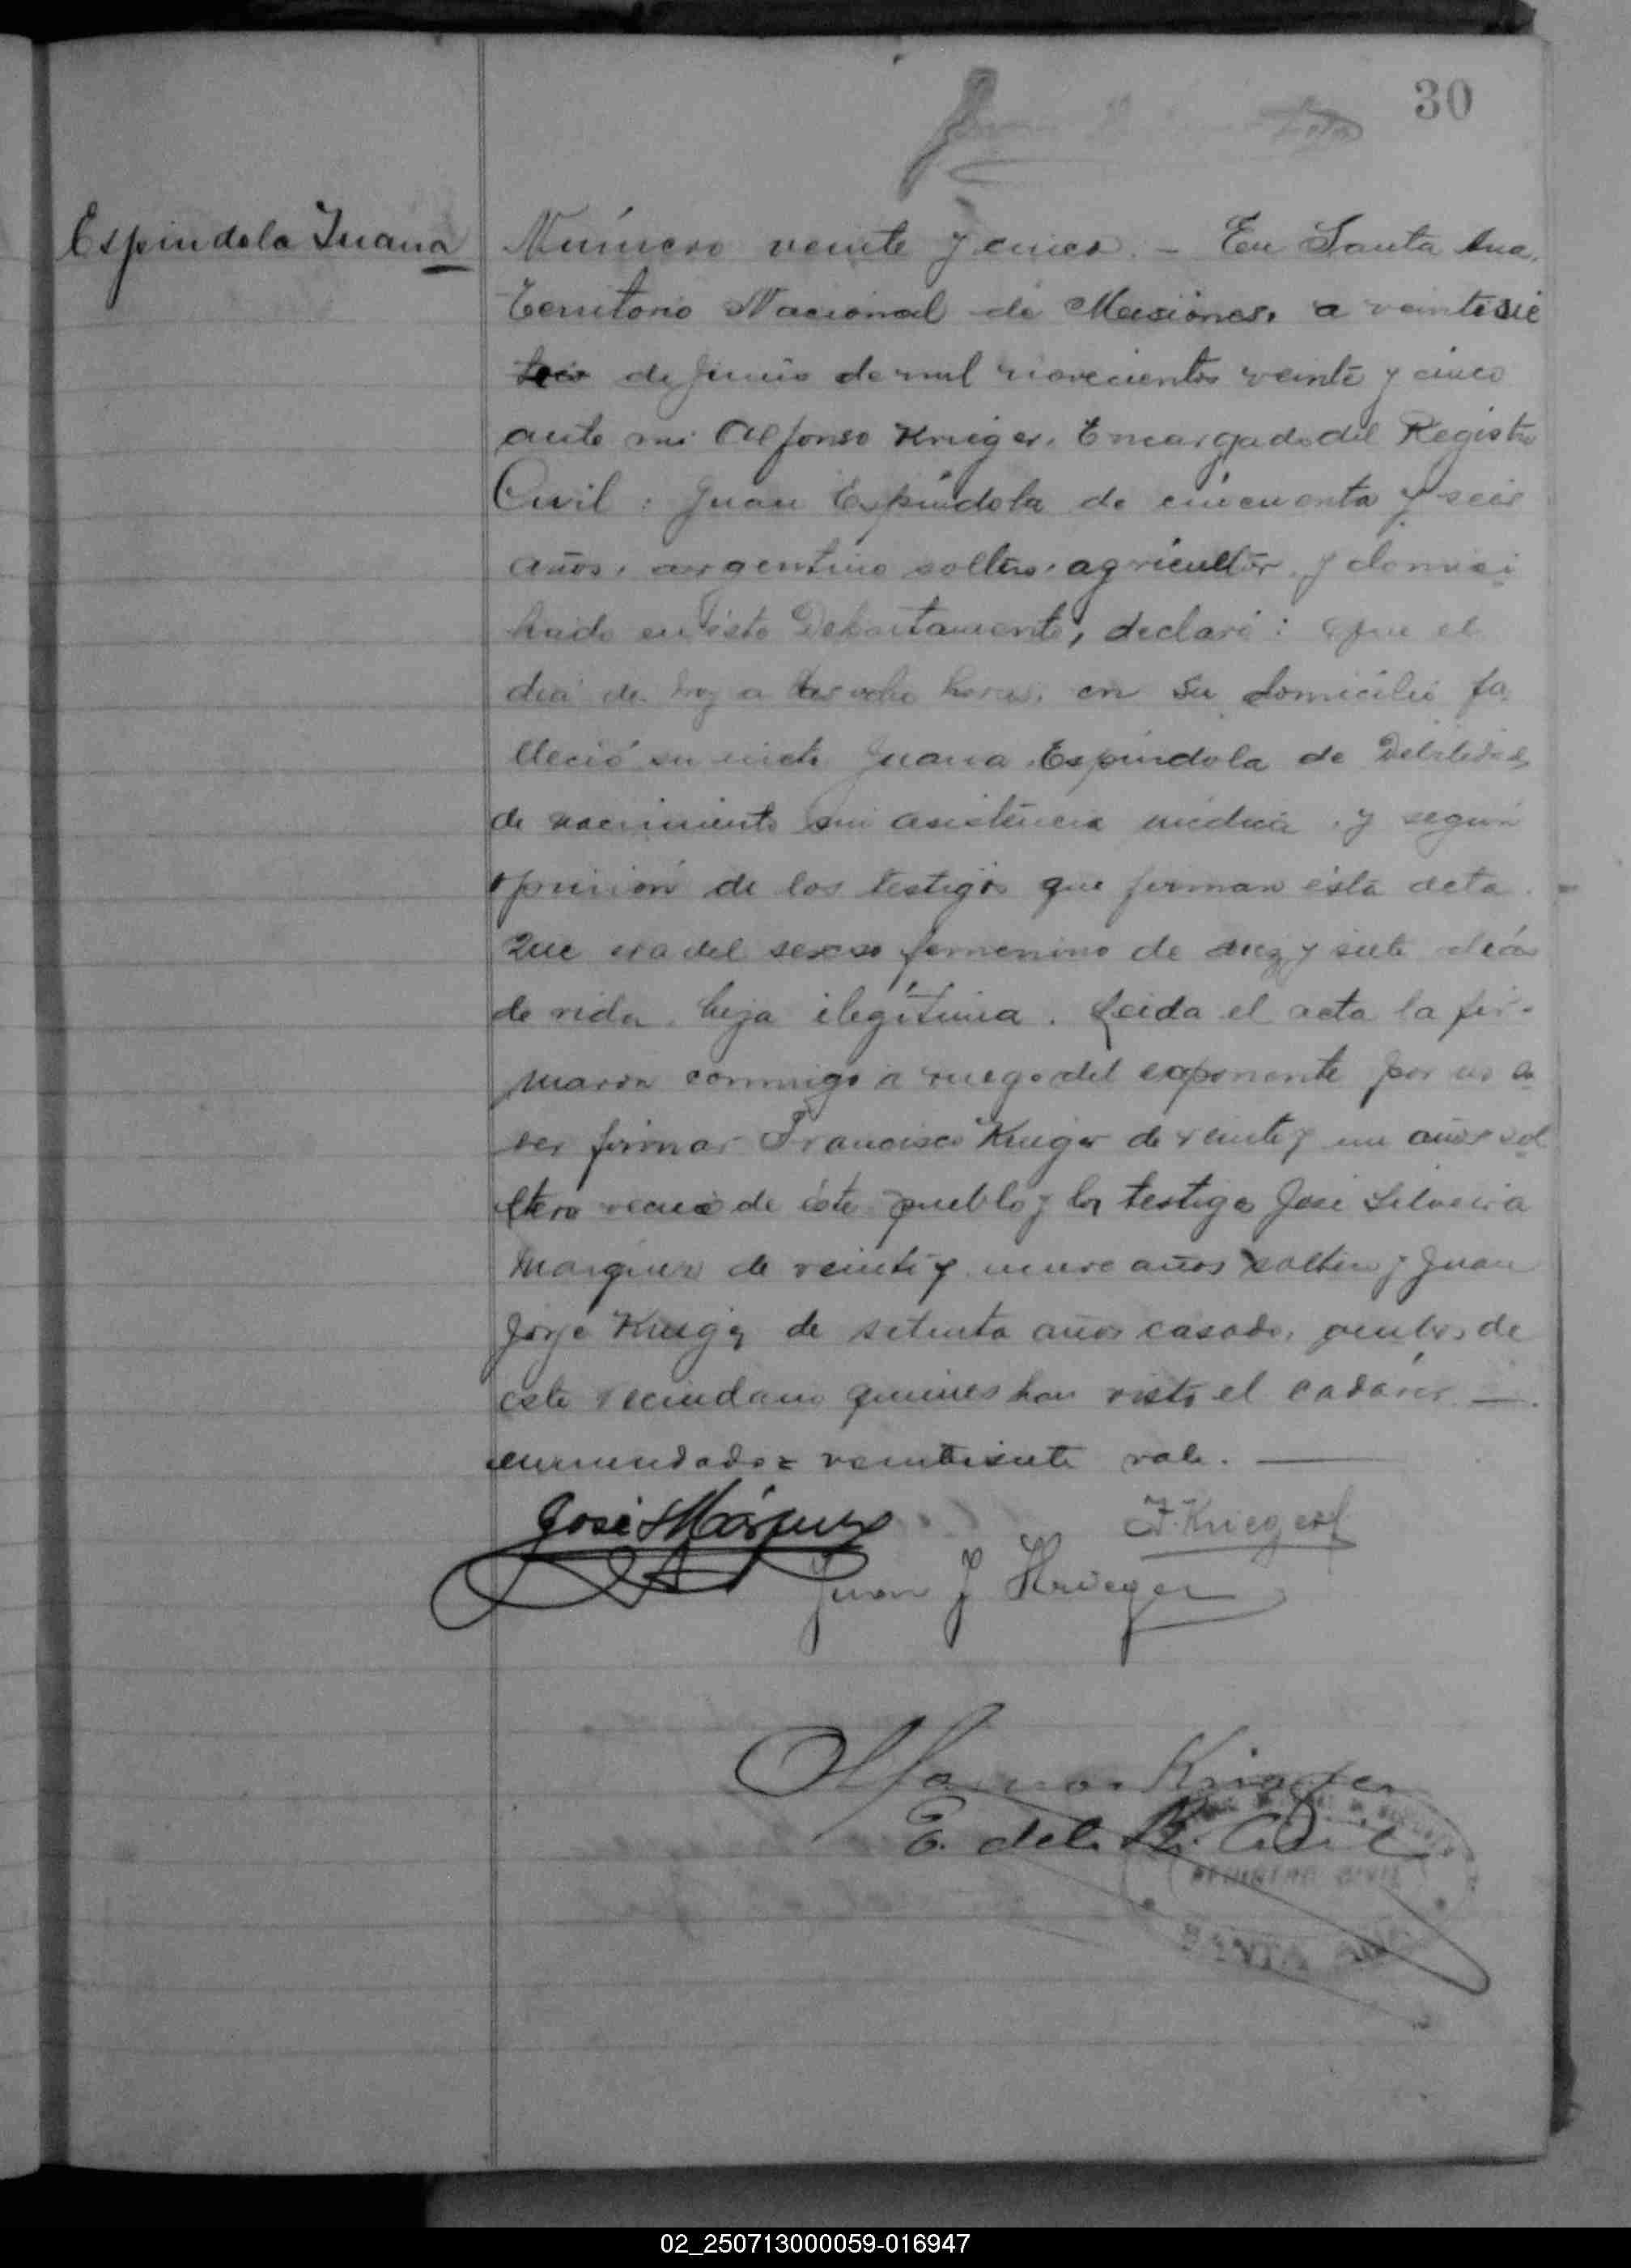 30
Espindola Juana
Número veinte y cinco. – En Santa Ana,
Territorio Nacional de Misiones, a veintisie
te de Junio de mil novecientos veinte y cinco
ante mi Alfonso Krieger, Encargado del Registro
Civil : Juan Espíndola de cincuenta y seis
años, argentino soltero, agricultor, y domici
liado en éste Departamento, declaró : Que el
dia de hoy a las ocho horas, en su domicilio fa
lleció su nieta Juana Espíndola de Debilidad
de nacimiento sin asistencia médica, y según
opinión de los testigos que firman ésta acta.
Que era del sexso femenino de diez y siete dias
de vida, hija ilegítima. Leida el acta la fir-
maron conmigo a ruego del exponente por no sa
ber firmar Francisco Krieger de veinte y un años sol
ltero vecino de éste pueblo y los testigos José Silveira
Marquez de veinte y nueve años soltero y Juan
Jorje Krieger de setenta años casado, ambos de
este vecindario quienes han visto el cadáver. —
enmendado = veintisiete vale. —
José Márquez
F. Krieger
Juan J Krieger
Alfonso Krieger
E. del R. Civil
REGISTRO CIVIL
SANTA ANA
02_250713000059-016947